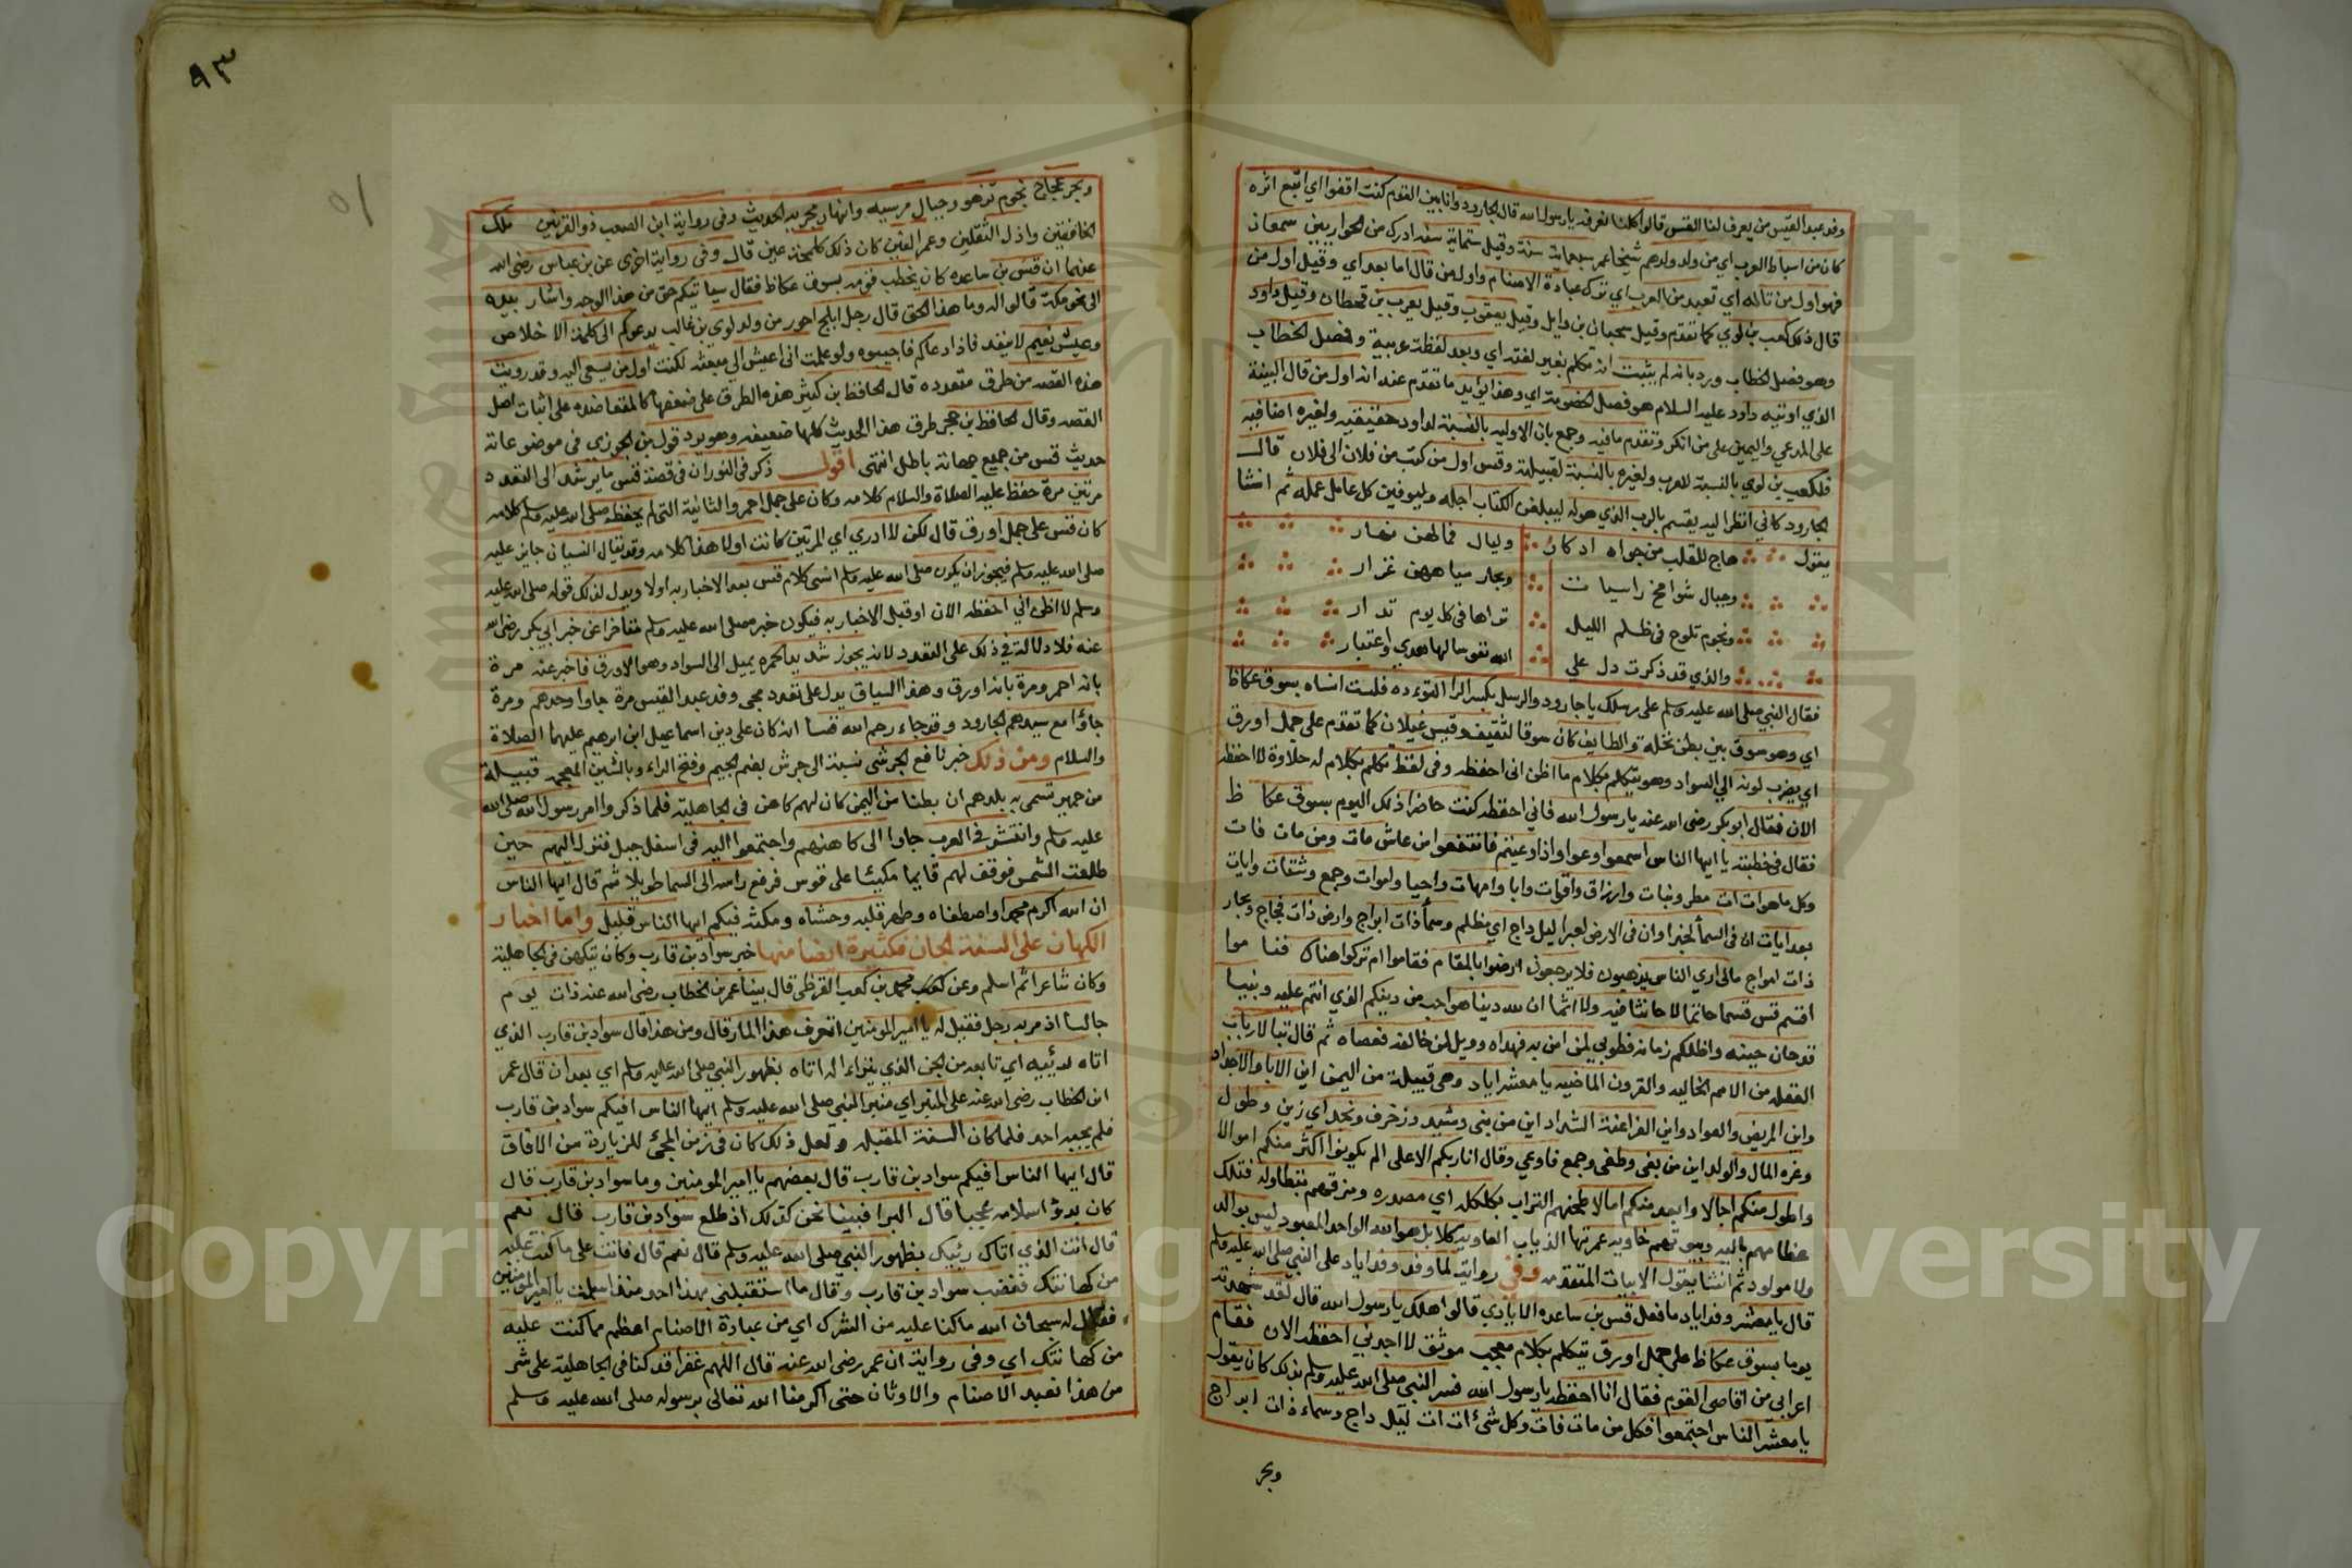 وفد عبد القيس من يعرف لنا القس قالوا كلنا نعرفه يا رسول الله قال الجارود وانا بين القوم كنت اقفوا اي اتبع اثره
كان من اسباط العرب اي من ولد ولدهم شيخا عمر سبعماية سنة وقيل ستماية سنة ادرك من الحواريين سمعان
فهو اول من تاله اي تعبد من العرب اي ترك عبادة الاصنام واول من قال اما بعد اي وقيل اول من
قال ذلك كعب بن لوي كما تقدم وقيل سحبان بن وايل وقيل يعقوب وقيل يعرب بن قحطان وقيل داود
وهو فصل الخطاب ورد بانه لم يثبت انه تكلم بغير لغته اي وبعد لفظة عربية وفصل الخطاب
الذي اوتيه داود عليه السلام هو فصل الخصومة اي وهذا يويد ما تقدم عنه انه اول من قال البينة
على المدعي واليمين على من انكر وتقدم ما فيه وجمع بان الاوليه بالنسبة لداود حقيقيه ولغيره اضافيه
فلكعب بن لوي بالنسبة للعرب ولغيره بالنسبة لقبيلته وقس اول من كتب من فلان الى فلان قال
الجارود كاني انظر اليه يقسم بالرب الذي هو له ليبلغن الكتاب اجله وليوفين كل عامل عمله ثم انشا
يقول هاج للقلب من جواه ادكار وليال خلالهن نهار
وجبال شوامخ راسيات وبحار مياههن غزار
ونجوم تلوح في ظلم الليل تراها في كل يوم تدار
والذي قد ذكرت دل على الله نفوسا لها هدي واعتبار
فقال النبي صلى الله عليه وسلم على رسلك يا جارود والرسل بكسر الرا التوءده فلست انساه بسوق عكاظ
اي وهو سوق بين بطن نخله والطايف كان سوقا لثقيف وقيس غيلان كما تقدم على جمل اورق
اي يضرب لونه الي السواد وهو يتكلم بكلام ما اظن اني احفظه وفي لفظ تكلم بكلام له حلاوة لا احفظه
الان فقال ابو بكر رضى الله عنه يا رسول الله فاني احفظه كنت حاضرا ذلك اليوم بسوق عكاظ
فقال في خطبته يا ايها الناس اسمعوا وعوا واذا وعيتم فانتفعوا من عاش مات ومن مات فات
وكل ما هو ات ات مطر ونبات وارزاق واقوات وابا وامهات واحيا واموات وجمع وشتات وايات
بعد ايات ان في السما لخبرا وان في الارض لعبرا ليل داج اي مظلم وسما ذات ابراج وارض ذات فجاج وبحار
ذات امواج مالي اري الناس يذهبون فلا يرجعون ارضوا بالمقام فقاموا ام تركوا هناك فناموا
اقسم قس قسما حاتما لا حانثا فيه ولا اثما ان لله دينا هو احب من دينكم الذي انتم عليه ونبيا
قد حان حينه واظلكم زمانه فطوبي لمن امن به فهداه وويل لمن خالفه فعصاه ثم قال تبا لارباب
الغفله من الامم الخاليه والقرون الماضيه يا معشر اياد وهي قبيلة من اليمن اين الابا والاجداد
واين المريض والعواد واين الفراعنة الشداد اين من بنى وشيد وزخرف ونجد اي زين وطول
وغره المال والولد اين من بغى وطغى وجمع فاوعي وقال انا ربكم الاعلى الم يكونوا اكثر منكم اموالا
واطول منكم اجالا وابعد منكم امالا طحنهم التراب بكلكله اي مصدره ومزقهم بتطاوله فتلك
عظامهم باليه وبيوتهم خاويه عمرتها الذياب العاويه كلا بل هو الله الواحد المعبود ليس بوالد
ولا مولود ثم انشا يقول الابيات المتقدمه وفي رواية لما وفد وفد اياد على النبي صلى الله عليه وسلم
قال يا معشر وفد اياد ما فعل قس بن ساعده الايادي قالوا هلك يا رسول الله قال لقد شهدته
يوما بسوق عكاظ على جمل اورق يتكلم بكلام معجب موثق لا اجدني احفظه الان فقام
اعرابي من اقاصي القوم فقال انا احفظه يا رسول الله فسر النبي صلى الله عليه وسلم بذلك كان يقول
يا معشر الناس اجتمعوا فكل من مات فات وكل شئ ات ات ليل داج وسماء ذات ابراج
وبحر
٩٣
وبحر عجاج نجوم تزهر وجبال مرسيه وانهار مجريه الحديث وفي رواية اين الصعب ذو القرنين ملك
الخافقين واذل الثقلين وعمر الفين كان ذلك كلمحة عين قال وفي رواية اخري عن بن عباس رضى الله
عنهما ان قس بن ساعده كان يخطب قومه بسوق عكاظ فقال سياتيكم حق من هذا الوجه واشار بيده
الى نحو مكة قالوا له وما هذا الحق قال رجل ابلج احور من ولد لوي بن غالب يدعوكم الى كلمة الاخلاص
وعيش نعيم لا ينفد فاذا دعاكم فاجيبوه ولو علمت اني اعيش الي مبعثه لكنت اول من يسعى اليه وقد رويت
هذه القصه من طرق متعدده قال الحافظ بن كثير هذه الطرق على ضعفها كالمتعاضده على اثبات اصل
القصه وقال الحافظ بن حجر طرق هذا الحديث كلها ضعيفه وهو يرد قول بن الجوزي في موضوعاته
حديث قس من جميع جهاته باطل انتهى اقول ذكر في النور ان في قصة قس ما يرشد الى التعدد
مرتين مرة حفظ عليه الصلاة والسلام كلامه وكان على جمل احمر والثانية التي لم يحفظ صلى الله عليه وسلم كلامه
كان قس على جمل اورق قال لكن لا ادري اي المرتين كانت اولا هذا كلامه وقد يقال النسيان جايز عليه
صلى الله عليه وسلم فيجوز ان يكون صلى الله عليه وسلم انسي كلام قس بعد الاخبار به اولا ويدل لذلك قوله صلى الله عليه
وسلم لا اظن اني احفظه الان او قبل الاخبار به فيكون خبره صلى الله عليه وسلم متاخرا عن خبر ابي بكر رضى الله
عنه فلا دلالة في ذلك على التعدد لانه يجوز شديد الحمره يميل الى السواد وهو الاورق فاخبر عنه مرة
بانه احمر ومرة بانه اورق وهذا السياق يدل على تعدد مجي وفد عبد القيس مرة جاوا وحدهم ومرة
جاؤا مع سيدهم الجارود وقد جاء رحم الله قسا انه كان على دين اسماعيل ابن ابرهيم عليهما الصلاة
والسلام ومن ذلك خبر نافع الجرشي نسبة الى جرش بضم الجيم وفتح الراء وبالشين المعجمه قبيلة
من حمير تسمى به بلدهم ان بطنا من اليمن كان لهم كاهن في الجاهلية فلما ذكر وا امر رسول الله صلى الله
عليه وسلم وانتشر في العرب جاوا الى كاهنهم واجتمعوا اليه في اسفل جبل فنزل اليهم حين
طلعت الشمس فوقف لهم قايما مكبئا على قوس فرفع راسه الى السما طويلا ثم قال ايها الناس
ان الله اكرم محمدا واصطفاه وطهر قلبه وحشاه ومكثه فيكم ايها الناس قليل واما اخبار
الكهان على السنة الجان فكثيرة ايضا منها خبر سواد بن قارب وكان يتكهن في الجاهلية
وكان شاعرا ثم اسلم وعن محمد بن كعب القرظي قال بينا عمر بن الخطاب رضى الله عنه ذات يوم
جالسا اذ مر به رجل فقيل له يا امير المومنين اتعرف هذا المار قال ومن هذا قال سواد بن قارب الذي
اتاه رئيه اي تابعه من الجن الذي يتراءا له اتاه بظهور النبي صلى الله عليه وسلم اي بعد ان قال عمر
ابن الخطاب رضى الله عنه على المنبر اي منبر النبي صلى الله عليه وسلم ايها الناس افيكم سواد بن قارب
فلم يجيبه احد فلما كان السنة المقبله ولعل ذلك كان في زمن المجئ للزيارة من الافاق
قال ايها الناس افيكم سواد بن قارب قال بعضهم يا امير المومنين وما سواد بن قارب قال
كان بدؤ اسلامه عجيبا قال البرا فبينا نحن كذلك اذ طلع سواد بن قارب قال نعم
قال انت الذي اتاك رئيك بظهور النبي صلى الله عليه وسلم قال نعم قال فانت على ما كنت عليه
من كهانتك فغضب سواد بن قارب وقال ما استقبلني بهذا احد منذ اسلمت يا امير المومنين
فقال له سبحان الله ما كنا عليه من الشرك اي من عبادة الاصنام اعظم مما كنت عليه
من كهانتك اي وفي رواية ان عمر رضى الله عنه قال اللهم غفرا قد كنا في الجاهلية على شر
من هذا نعبد الاصنام والاوثان حتى اكرمنا الله تعالى برسوله صلى الله عليه وسلم